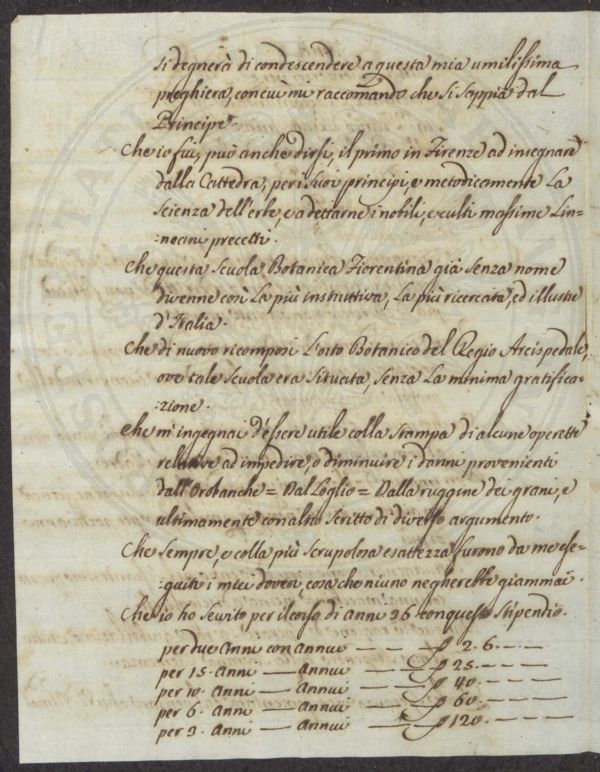 si degnerà di condescendere a questa mia umilissima
preghiera, con cui mi raccomando che si sappia dal
Principe.
Che io fui, può anche dirsi, il primo in Firenze ad insegnare
dalla Cattedra, per i suoi principi, e metodicamente la
scienza dell'erbe, e a dettarne i nobili, e culti massime Lin=
:neani precetti.
Che questa Scuola Botanica Fiorentina già senza nome
divenne così la più instruttiva, la più ricercata, ed illustre
d'Italia.
Che di nuovo ricomposi l'orto Botanico del Regio Arcispedale,
ove tale scuola era situata, senza la minima gratifica=
:zione.
Che m'ingegnai d'essere utile colla stampa di alcune operette
relative ad impedire, o diminuire i danni provenienti
dall'Orobanche = Dal Loglio = Dalla ruggine dei grani, e
ultimamente con altro scritto di diverso argomento.
Che sempre, e colla più scrupolosa esattezza furono da me ese=
:guiti i miei doveri, cosa che niuno negherebbe giammai.
Che io ho servito per il corso di anni 36 con questo stipendio.
per due Anni con annui — — — 2. 6. — — —
per 15. Anni — Annui — — — 25. — — —
per 10. Anni — Annui — — — 40. — — —
per 6. Anni — Annui — — 60. — — —
per 3. Anni — Annui — — 120. — — —